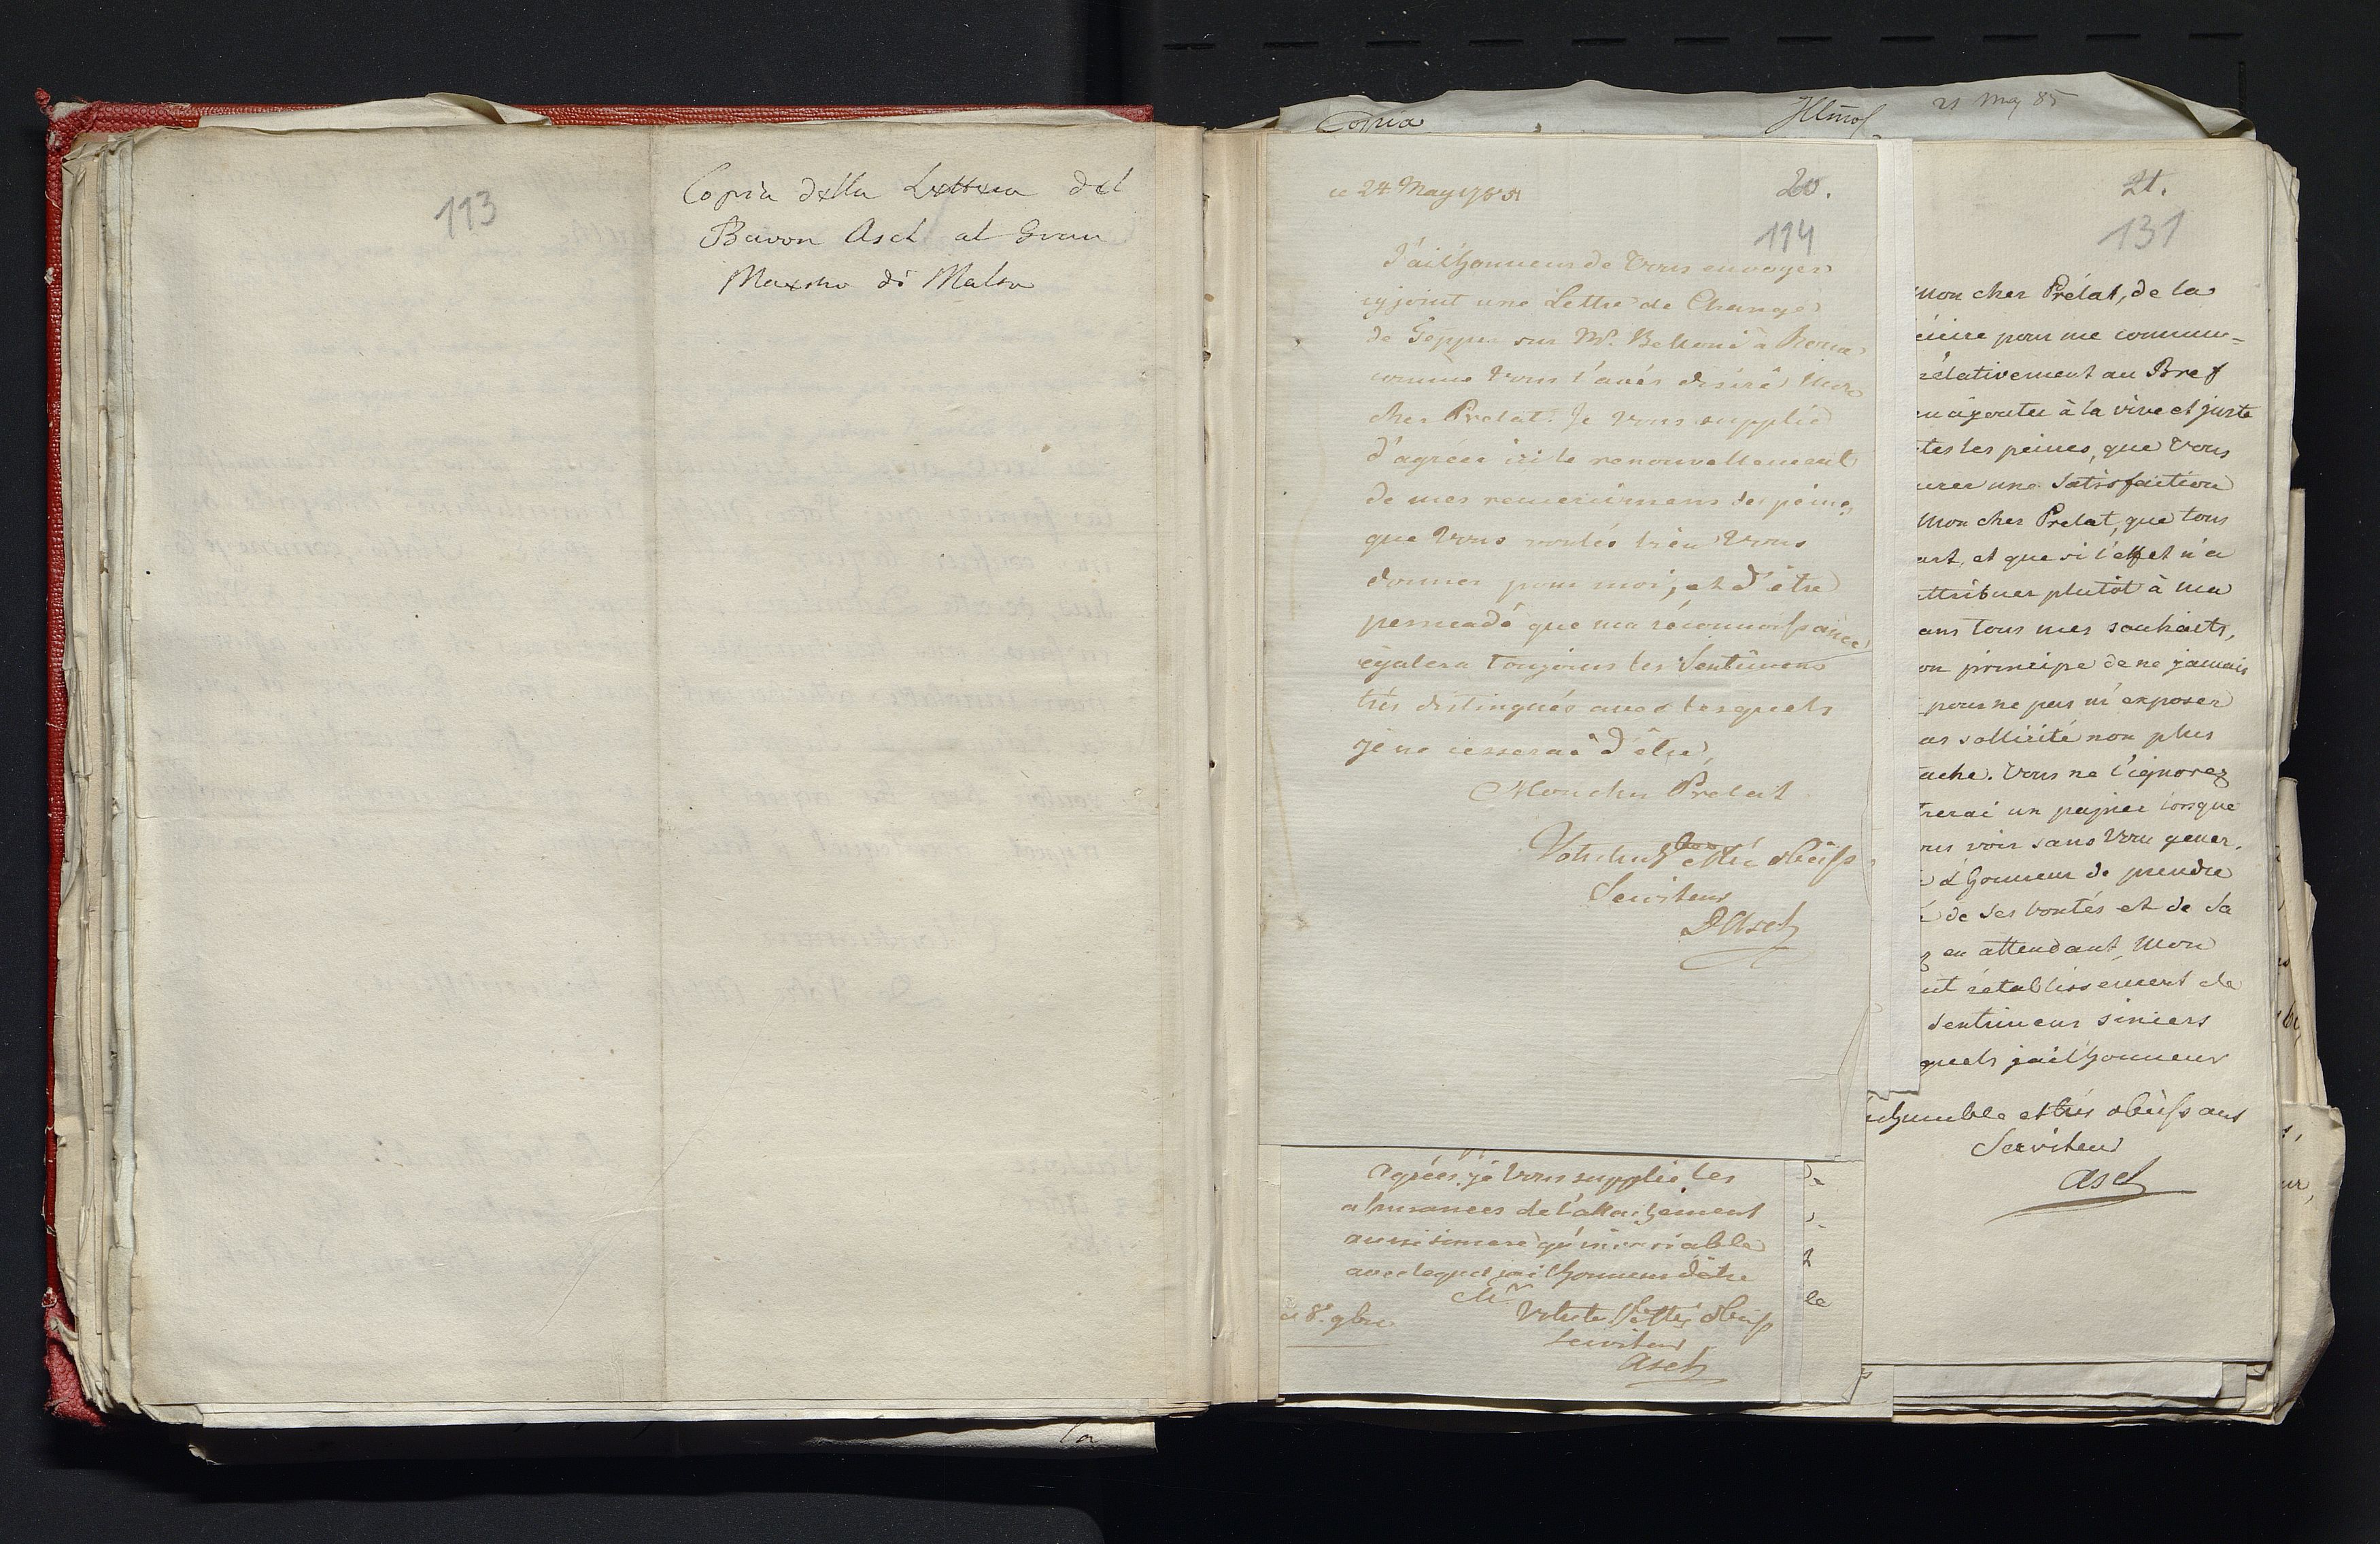 113
Copia della Lettera del
Baron Asch al Gran
Maestro di Malta
Copia
21 May 85
ce 24 May 1785
20.
114
J'ai l'honneur de Vous envoyer
cyjoint une Lettre de Change
de Geppu sur Mr. Belloni à Rome
comme Vous l'avés desiré Mon
cher Prelat. Je Vous supplie
d'agréer ici le renouvellement
de mes remercimens des peines
que Vous voulés bien Vous
donner pour moi, et d'être
persuadé que ma réconnoissance
égalera toujours les Sentimens
très distingués avec lesquels
je ne cesserai d'être,
Mon cher Prelat
obeiss
Serviteur
D'Asch
agréés, je Vous supplie les
assurances de l'attachement
aussi sincere qu'invariable
avec lequel j'ai l'honneur d'être
Mr
ce 8e. 9bre
obeiss
Serviteur
Asch
le
21.
131
Mon cher Prélat, de la
écrire pour me commu=
rélativement au Bref
en ajouter à la vive et juste
tes les peines, que Vous
urer une Satisfaction
Mon cher Prelat, que tous
art, et que si l'effet n'a
attribuer plutôt à ma
ans tous mes souhaits,
on principe de ne jamais
pour ne pas m'exposer
as sollicité non plus
ache. Vous ne l'ignorez
trerai un papier lorsque
ous voir sans Vous gener.
l'honneur de prendre
de ses bontés et de sa
en attendant, Mon
ut rétablissement de
sentimens sinceres
quels j'ai l'honneur
humble et très obeissant
Serviteur
Asch
la